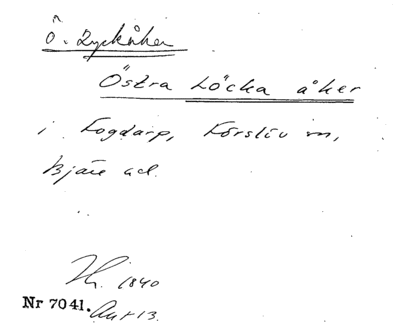 Ô. Lyckåker
Östra Löcka åker
i Fogdarp, Förslöv sn,
Bjäre hd.
Th. 1840
Nr 7041. Akt 13.